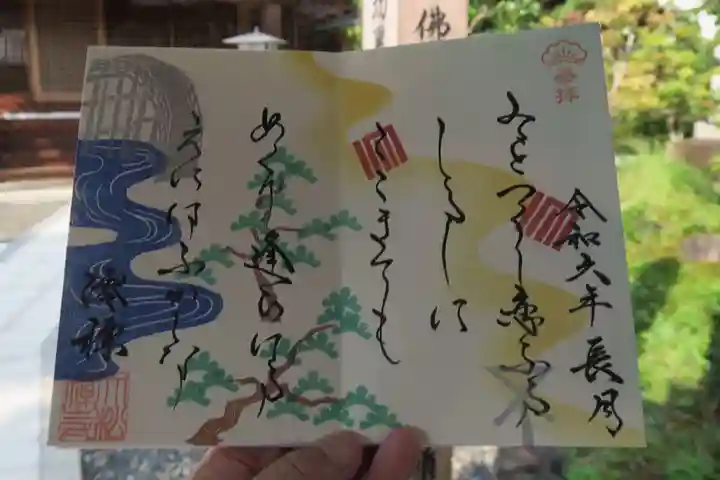 佛
奉拝
令和六年長月
みをつくし恋ふる
しるしに
ここまても
めくり逢ひける
えにはふかしな
澪標